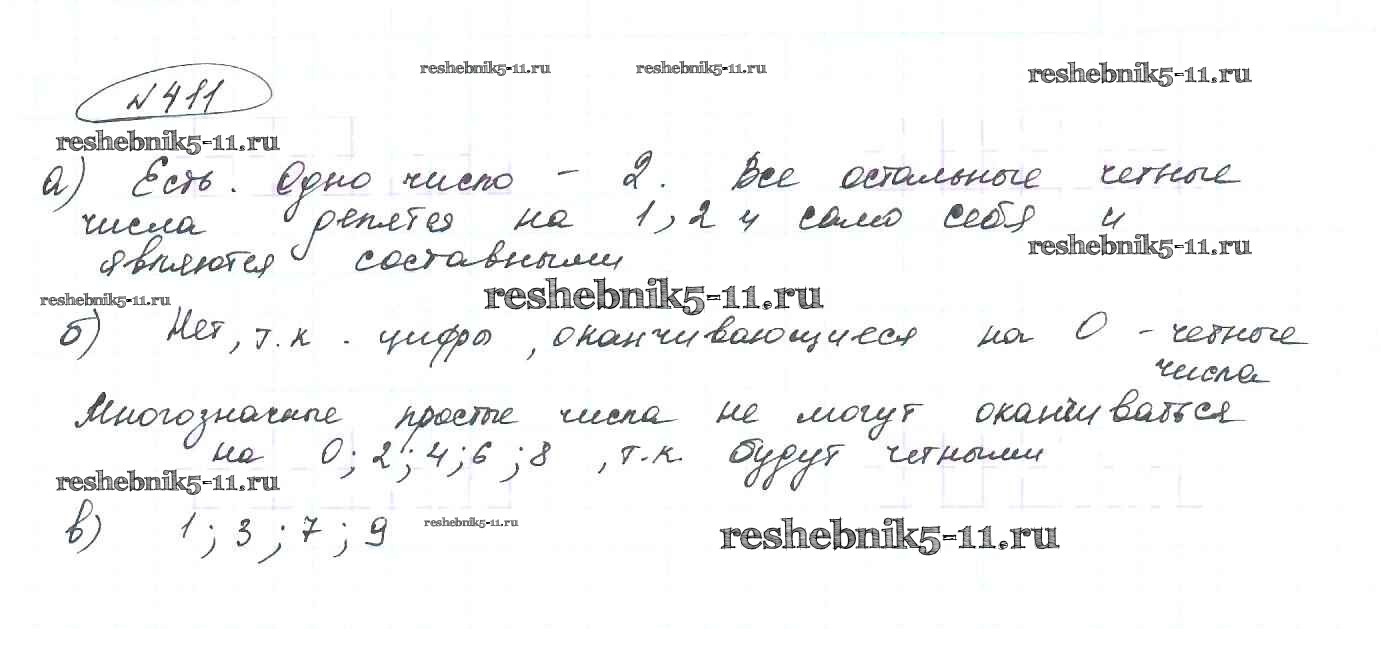 reshebnik5-11.ru reshebnik5-11.ru reshebnik5-11.ru
№ 411
reshebnik5-11.ru
а) Есть. Одно число - 2. Все остальные четные
числа делятся на 1, 2 и само себя и
являются составными
reshebnik5-11.ru
reshebnik5-11.ru
reshebnik5-11.ru
б) Нет, т.к. цифры, оканчивающиеся на 0 - четные
числа
Многозначные простые числа не могут оканчиваться
на 0; 2; 4; 6; 8, т.к. будут четными
reshebnik5-11.ru
в) 1; 3; 7; 9
reshebnik5-11.ru
reshebnik5-11.ru